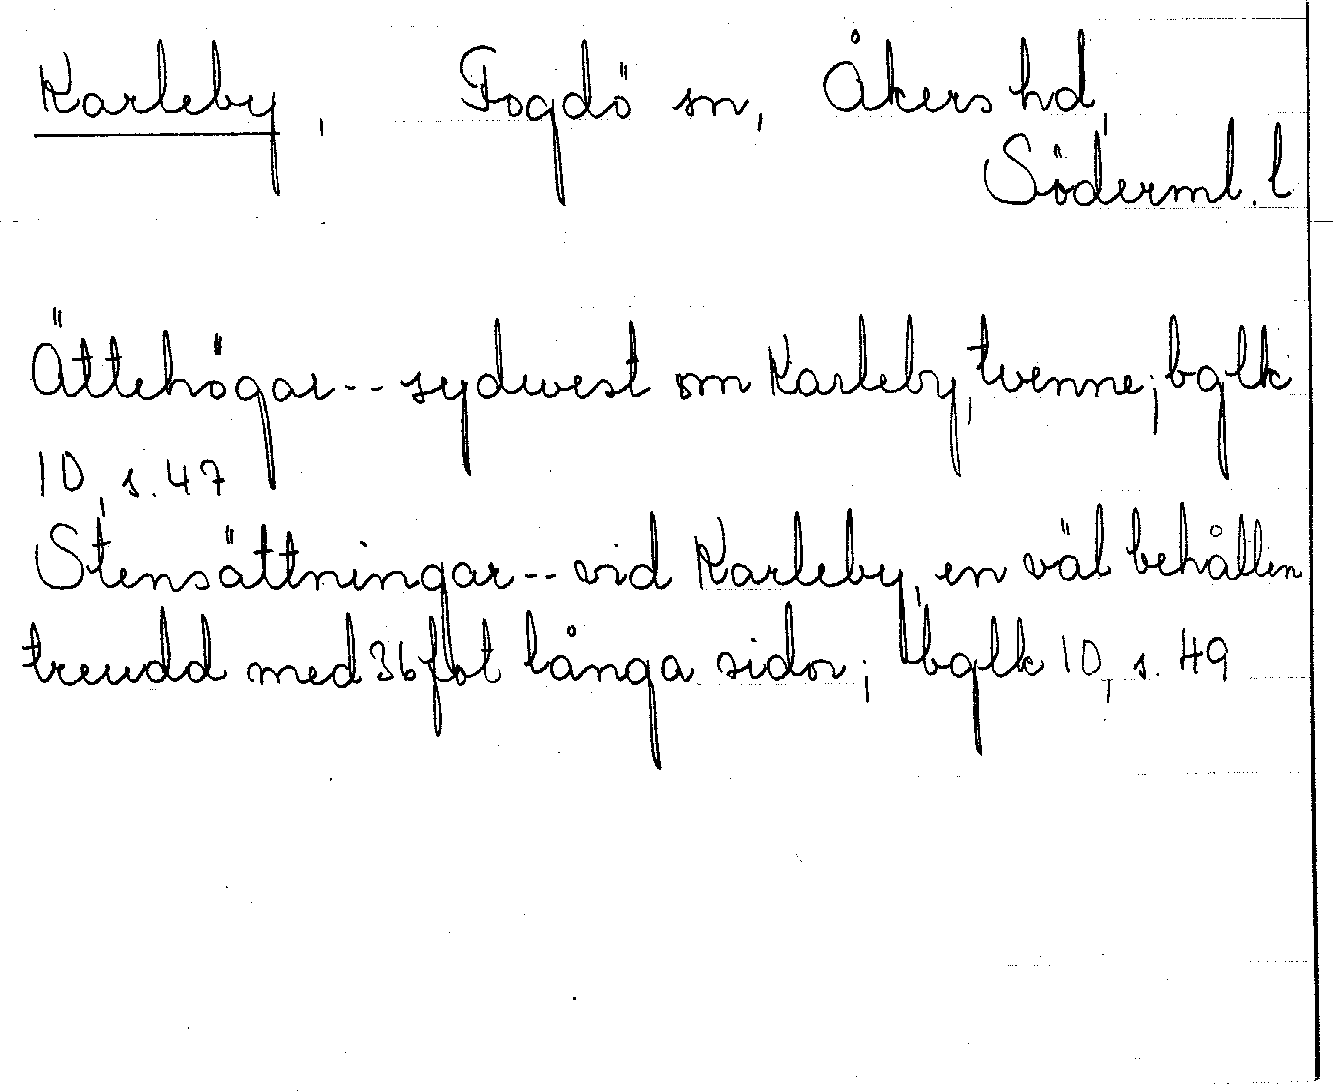 Karleby, Fogdö sn, Åkers hd,
Söderml. l
Ättehögar -- sydwest om Karleby, tvenne; bglk
10, s. 47
Stensättningar -- vid Karleby, en väl behållen
treudd med 36 fot långa sidor; bglk 10, s. 49